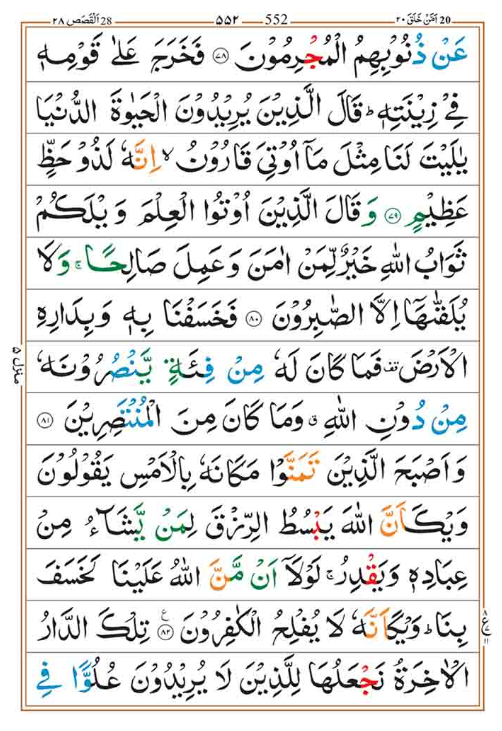 28 اَلْقَصَص ٢٨ 552 — ٥٥٢ 20 اَمَّنْ خَلَقَ ٢٠
عَنْ ذُنُوْبِهِمُ الْمُجْرِمُوْنَ ﴿٧٨﴾ فَخَرَجَ عَلٰى قَوْمِهٖ
فِىْ زِيْنَتِهٖ ؕ قَالَ الَّذِيْنَ يُرِيْدُوْنَ الْحَيٰوةَ الدُّنْيَا
يٰلَيْتَ لَنَا مِثْلَ مَاۤ اُوْتِىَ قَارُوْنُ ۙ اِنَّهٗ لَذُوْ حَظٍّ
عَظِيْمٍ ﴿٧٩﴾ وَقَالَ الَّذِيْنَ اُوْتُوا الْعِلْمَ وَيْلَكُمْ
ثَوَابُ اللّٰهِ خَيْرٌ لِّمَنْ اٰمَنَ وَعَمِلَ صَالِحًا ۚ وَلَا
يُلَقّٰٮهَاۤ اِلَّا الصّٰبِرُوْنَ ﴿٨٠﴾ فَخَسَفْنَا بِهٖ وَبِدَارِهِ
الْاَرْضَ ۣ فَمَا كَانَ لَهٗ مِنْ فِئَةٍ يَّنْصُرُوْنَهٗ
مِنْ دُوْنِ اللّٰهِ ۗ وَمَا كَانَ مِنَ الْمُنْتَصِرِيْنَ ﴿٨١﴾
وَاَصْبَحَ الَّذِيْنَ تَمَنَّوْا مَكَانَهٗ بِالْاَمْسِ يَقُوْلُوْنَ
وَيْكَاَنَّ اللّٰهَ يَبْسُطُ الرِّزْقَ لِمَنْ يَّشَآءُ مِنْ
عِبَادِهٖ وَيَقْدِرُ ۚ لَوْلَاۤ اَنْ مَّنَّ اللّٰهُ عَلَيْنَا لَخَسَفَ
بِنَا ؕ وَيْكَاَنَّهٗ لَا يُفْلِحُ الْكٰفِرُوْنَ ﴿٨٢﴾ تِلْكَ الدَّارُ
الْاٰخِرَةُ نَجْعَلُهَا لِلَّذِيْنَ لَا يُرِيْدُوْنَ عُلُوًّا فِى
منزل ٥